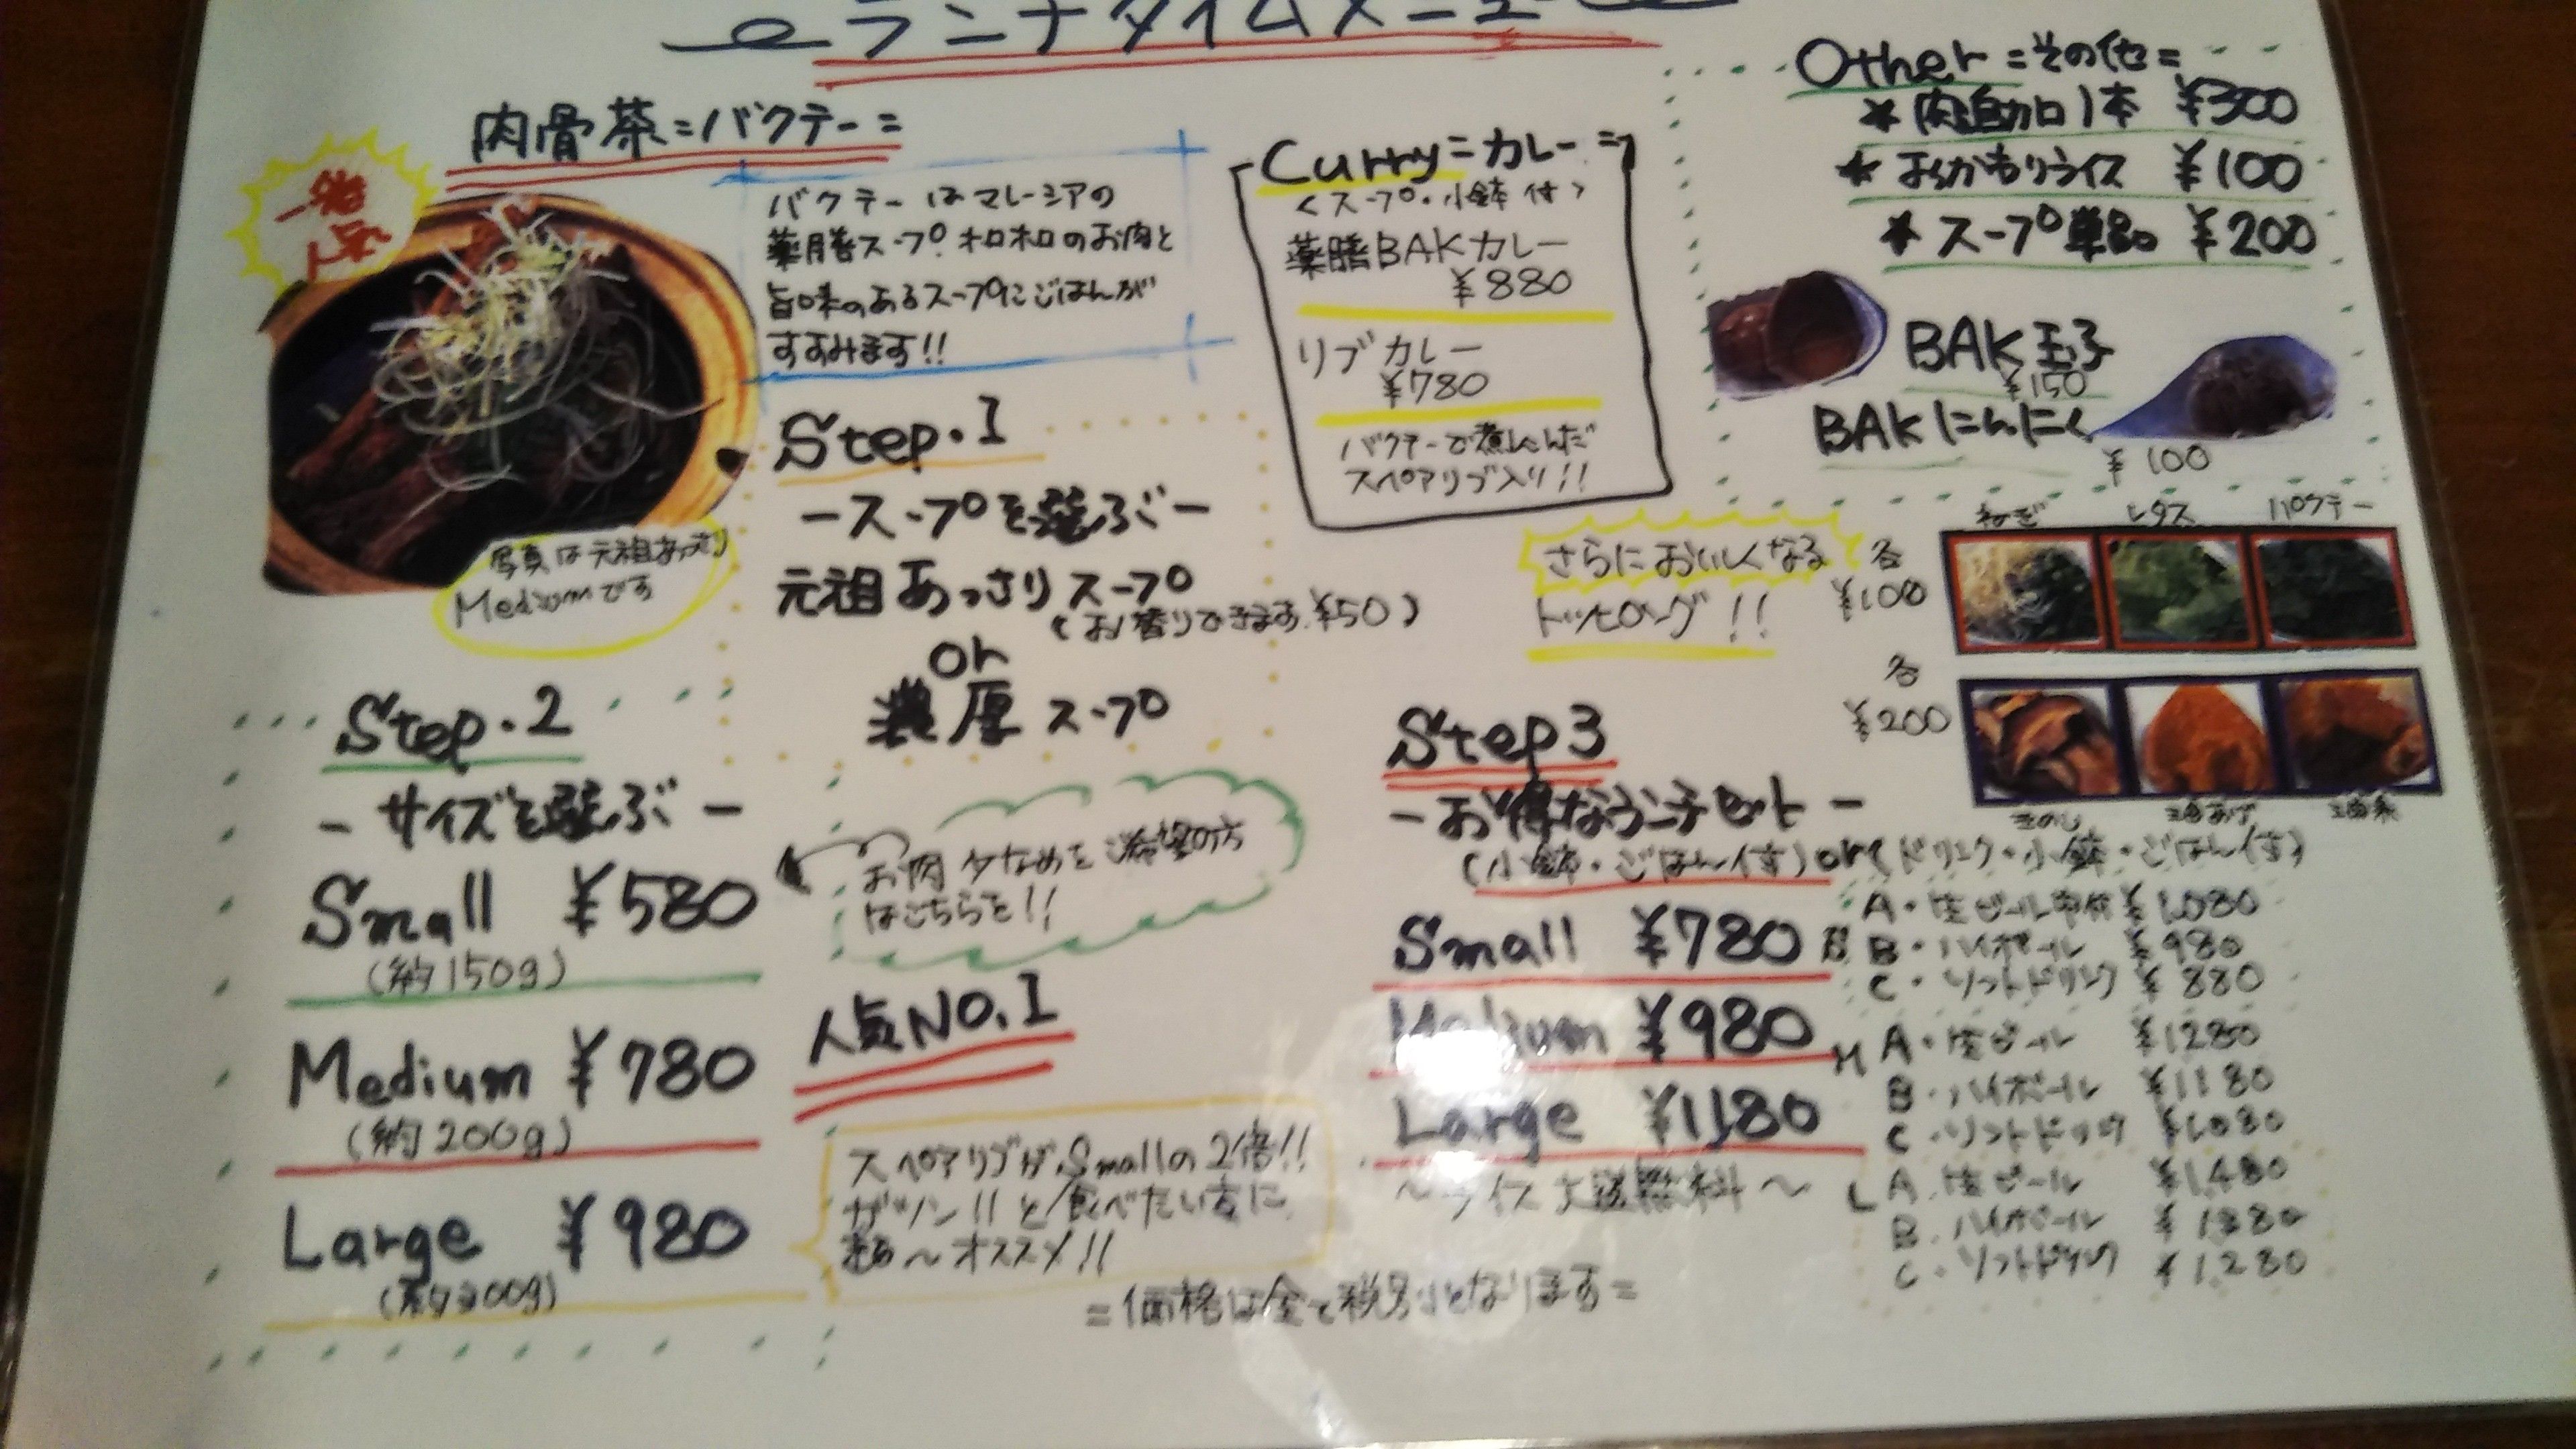 ランチタイムメニュー
肉骨茶=バクテー=
一番
人気
バクテーはマレーシアの
薬膳スープ。ホロホロのお肉と
旨味のあるスープにごはんが
すすみます!!
写真は元祖あっさり
Mediumです
Step.1
ースープを選ぶー
元祖あっさりスープ
(お替りできます。¥50)
or
濃厚スープ
Step.2
ーサイズを選ぶー
Small ¥580
(約150g)
お肉少なめをご希望の方
はこちらを!!
Medium ¥780
(約200g)
人気NO.1
Large ¥980
スペアリブがSmallの2倍!!
ガッツン!!と食べたい方に
～オススメ!!
Curry=カレー=
<スープ・小鉢付>
薬膳BAKカレー
¥880
リブカレー
¥780
バクテーで煮込んだ
スペアリブ入り!!
Other=その他=
★肉追加1本 ¥300
★おかわりライス ¥100
★スープ単品 ¥200
BAK玉子
¥150
BAKにんにく
¥100
さらにおいしくなる
トッピング!!
各
¥100
ねぎ レタス パクチー
各
¥200
きのこ 油あげ 油条
Step3
ーお得なランチセットー
(小鉢・ごはん付)or(ドリンク・小鉢・ごはん付)
Small ¥780
Medium ¥980
Large ¥1,180
～ライス大盛無料～
A・生ビール中付 ¥1,080
B・ハイボール ¥980
C・ソフトドリンク ¥880
M A・生ビール ¥1280
B・ハイボール ¥1180
C・ソフトドリンク ¥1,080
L A.生ビール ¥1,480
B.ハイボール ¥1380
C・ソフトドリンク ¥1,280
=価格は全て税別となります=